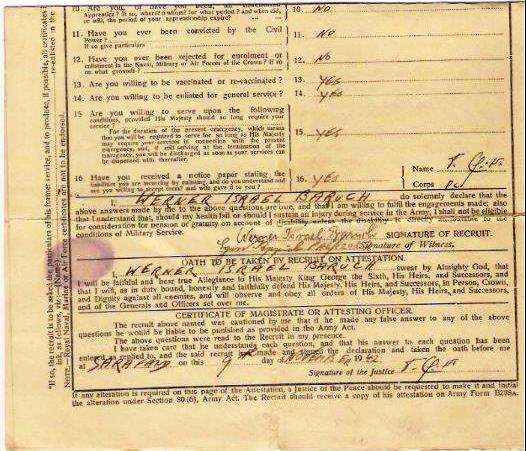 10. Are you, or have you been, an Indentured
Apprentice? If so, where? to whom? for what period? and when did,
or will, the period of your apprenticeship expire? 10. NO
11. Have you ever been convicted by the Civil
Power? 11. NO
If so give particulars
12. Have you ever been rejected for enrolment or
enlistment in the Naval, Military or Air Forces of the Crown? If so
on what grounds? 12. NO
13. Are you willing to be vaccinated or re-vaccinated? 13. YES
14. Are you willing to be enlisted for general service? 14. YES
15. Are you willing to serve upon the following
conditions, provided His Majesty should so long require your
service?
For the duration of the present emergency, which means
that you will be required to serve for so long as His Majesty
may require your services in connection with the present
emergency, and, if still serving at the termination of the
emergency, you will be discharged as soon as your services can
be dispensed with thereafter. 15. YES
16. Have you received a notice paper stating the
liabilities you are incurring by enlisting, and do you understand and
are you willing to accept them? and who gave it to you? 16. YES
Name
Corps
I, WERNER ISRAEL BARUCH do solemnly declare that the
above answers made by me to the above questions are true, and that I am willing to fulfil the engagements made; also
that I understand that, should my health fail or should I sustain an injury during service in the Army, I shall not be eligible
for consideration for pension or gratuity on account of disability, unless the disability is directly attributable to the
conditions of Military Service.
Werner Israel Baruch SIGNATURE OF RECRUIT.
Signature of Witness.
OATH TO BE TAKEN BY RECRUIT ON ATTESTATION.
I, WERNER ISRAEL BARUCH swear by Almighty God, that
I will be faithful and bear true Allegiance to His Majesty King George the Sixth, His Heirs, and Successors, and
that I will, as in duty bound, honestly and faithfully defend His Majesty, His Heirs, and Successors, in Person, Crown,
and Dignity against all enemies, and will observe and obey all orders of His Majesty, His Heirs, and Successors,
and of the Generals and Officers set over me.
CERTIFICATE OF MAGISTRATE OR ATTESTING OFFICER.
The recruit above named was cautioned by me that if he made any false answer to any of the above
questions he would be liable to be punished as provided in the Army Act.
The above questions were read to the Recruit in my presence.
I have taken care that he understands each question, and that his answer to each question has been
entered as replied to, and the said recruit has made and signed the declaration and taken the oath before me
at SARAFAND on this 9th day of 1942
Signature of the Justice
If any alteration is required on this page of the Attestation, a Justice of the Peace should be requested to make it and initial
the alteration under Section 80.(6), Army Act. The Recruit should receive a copy of his attestation on Army Form B288A.
*If so, the recruit is to be asked the particulars of his former service, and to produce, if possible, all certificates
re-enlisted in the
NOTE.—Royal Naval, Marine or Air Force certificates are not to be endorsed.